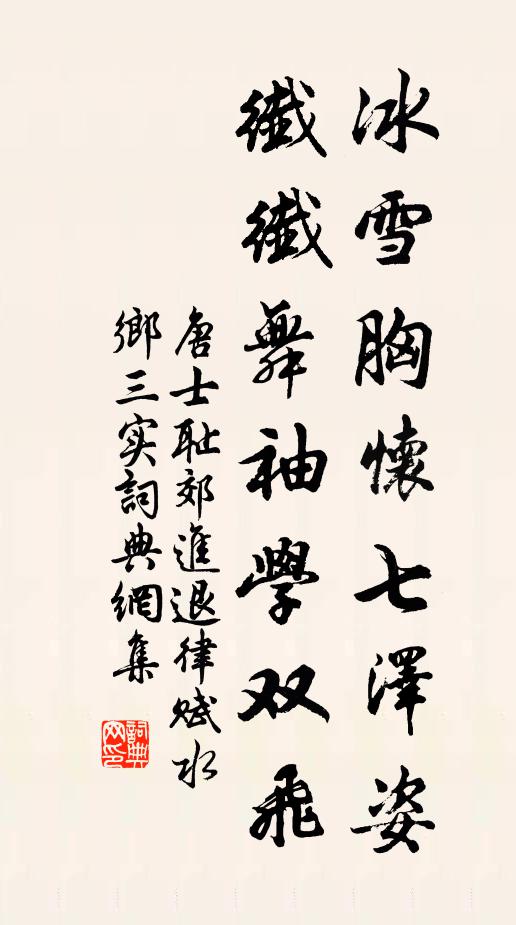 冰雪胸懷七澤姿
纖纖舞袖學双飛
唐士耻郊進退律賦水
鄉三实詞典網集
詞典網印